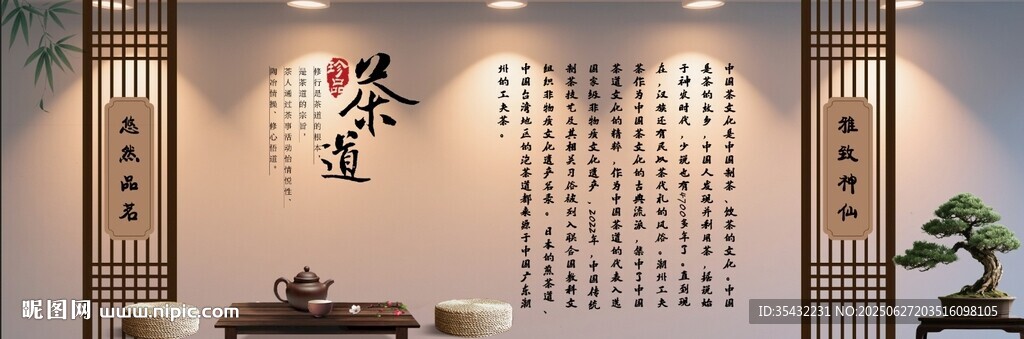 悠然品茗
茶道
珍品
修行是茶道的根本，
是茶道的宗旨，
茶人通过茶事活动怡情悦性、
陶冶情操、修心悟道。
中国茶文化是中国制茶、饮茶的文化。中国
是茶的故乡，中国人发现并利用茶，据说始
于神农时代，少说也有4700多年了。直到现
在，汉族还有民以茶代礼的风俗。潮州工夫
茶作为中国茶文化的古典流派，集中了中国
茶道文化的精粹，作为中国茶道的代表入选
国家级非物质文化遗产。2022年，中国传统
制茶技艺及其相关习俗被列入联合国教科文
组织非物质文化遗产名录。日本的煎茶道、
中国台湾地区的泡茶道都来源于中国广东潮
州的工夫茶。
雅致神仙
昵图网 www.nipic.com
ID:35432231 NO:20250627203516098105